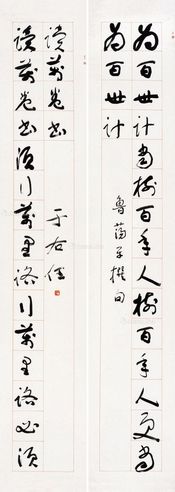 為百世計當樹百年人樹百年人更當
為百世計
魯蕩平撰句
讀萬卷書須行萬里路行萬里路必須
讀萬卷書
于右任